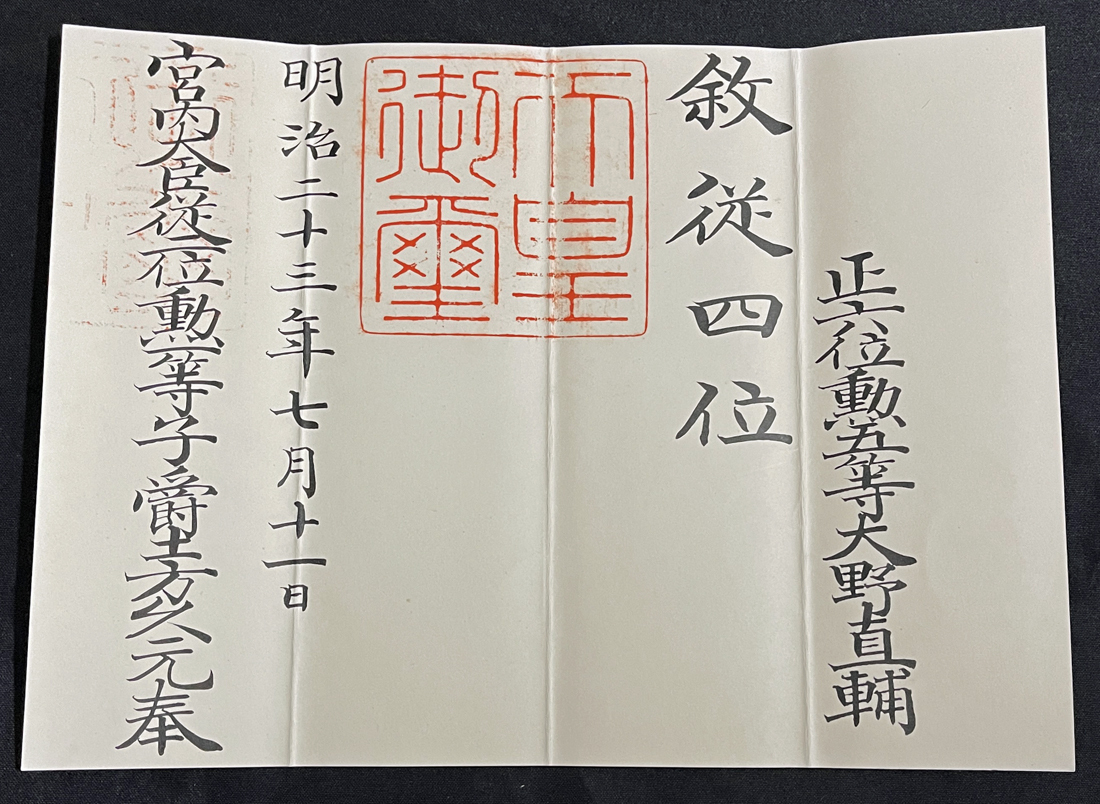 正六位勲五等大野直輔
敘従四位
天皇御璽
明治二十三年七月十一日
宮内大臣従二位勲一等子爵土方久元奉